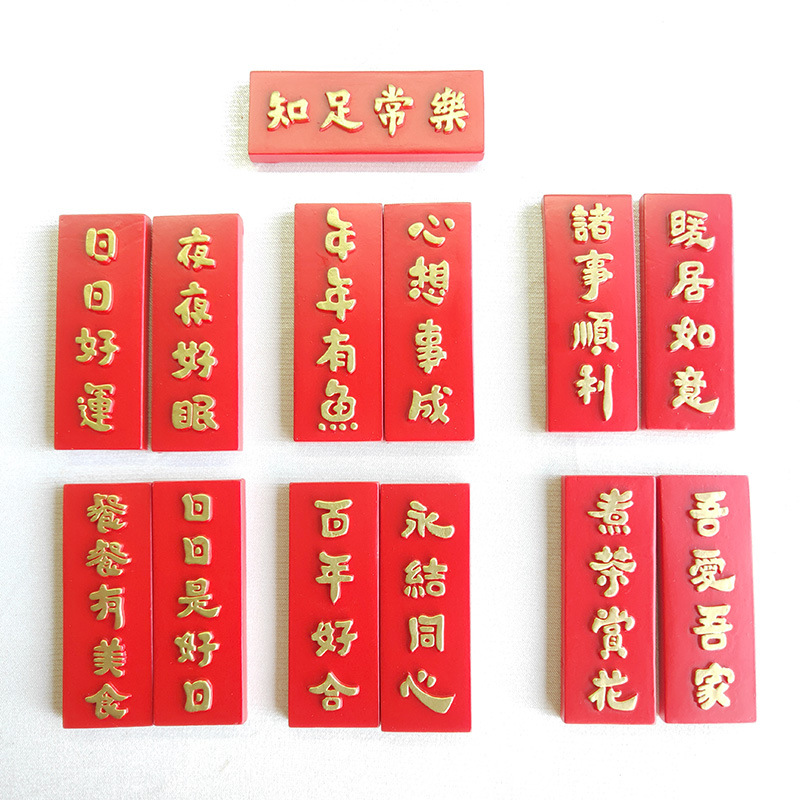 知足常樂
日日好運
夜夜好眠
年年有魚
心想事成
諸事順利
暖居如意
餐餐有美食
日日是好日
百年好合
永結同心
煮茶賞花
吾愛吾家